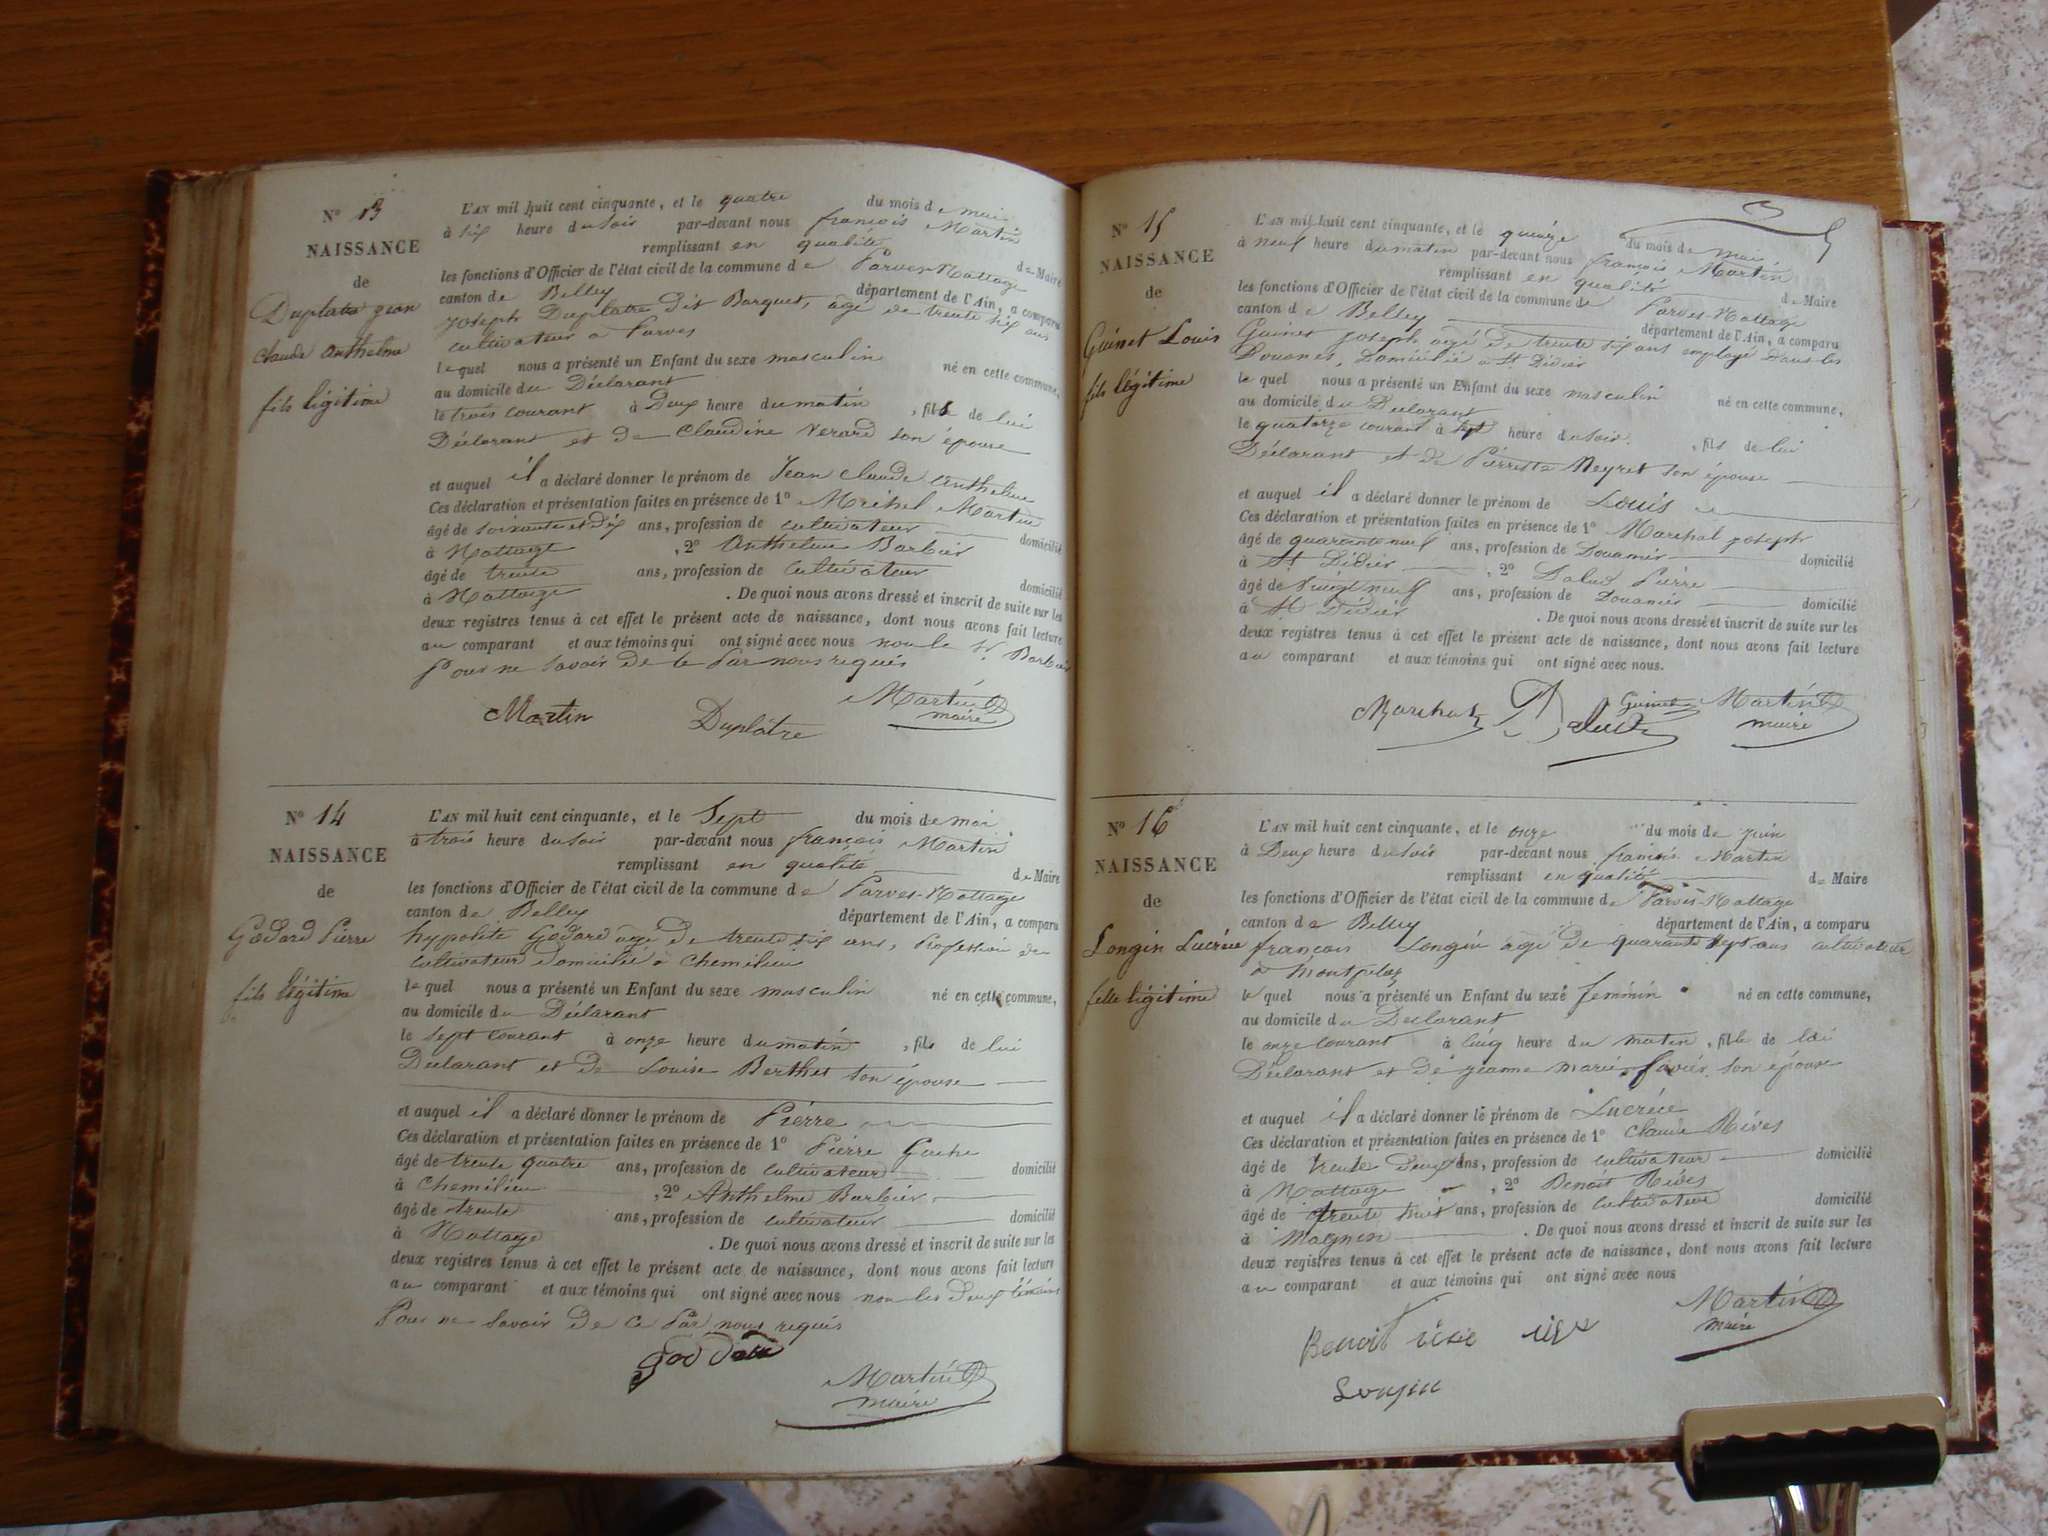 N° 13
NAISSANCE
de
Duplatre jean
claude anthelme
fils légitime
L'AN mil huit cent cinquante, et le quatre du mois de mai
à six heure du soir par-devant nous françois Martin
remplissant en qualité de Maire
les fonctions d'Officier de l'état civil de la commune de Parves-Nattage
canton de Belley département de l'Ain, a comparu
joseph Duplatre dit Barquet, âgé de trente six ans
cultivateur à Parves
le quel nous a présenté un Enfant du sexe masculin né en cette commune,
au domicile du Déclarant
le trois courant à Deux heure du matin, fils de lui
Déclarant et de Claudine Verard son épouse
et auquel il a déclaré donner le prénom de Jean claude anthelme
Ces déclaration et présentation faites en présence de 1° Michel Martin
âgé de soixante et dix ans, profession de cultivateur domicilié
à Nattage, 2° Anthelme Barbier
âgé de trente ans, profession de cultivateur domicilié
à Nattage. De quoi nous avons dressé et inscrit de suite sur les
deux registres tenus à cet effet le présent acte de naissance, dont nous avons fait lecture
au comparant et aux témoins qui ont signé avec nous non le Sr. Barbier
Pour ne savoir de ce Par nous requis
Martin Duplâtre Martin
maire
N° 14
NAISSANCE
de
Godard Pierre
fils légitime
L'AN mil huit cent cinquante, et le Sept du mois de mai
à trois heure du soir par-devant nous françois Martin
remplissant en qualité de Maire
les fonctions d'Officier de l'état civil de la commune de Parves-Nattage
canton de Belley département de l'Ain, a comparu
hypolite Godard age de trente six ans, Profession de
cultivateur domicilié à Chemilieu
le quel nous a présenté un Enfant du sexe masculin né en cette commune,
au domicile du Déclarant
le sept courant à onze heure du matin, fils de lui
Déclarant et de Louise Berthet son épouse
et auquel il a déclaré donner le prénom de Pierre
Ces déclaration et présentation faites en présence de 1° Pierre Gache
âgé de trente quatre ans, profession de cultivateur domicilié
à Chemilieu, 2° Anthelme Barbier
âgé de trente ans, profession de cultivateur domicilié
à Nattage. De quoi nous avons dressé et inscrit de suite sur les
deux registres tenus à cet effet le présent acte de naissance, dont nous avons fait lecture
au comparant et aux témoins qui ont signé avec nous non les deux témoins
Pour ne savoir de ce Par nous requis
Martin
maire
N° 15
NAISSANCE
de
Guinet Louis
fils légitime
L'AN mil huit cent cinquante, et le quinze du mois de mai
à neuf heure du matin par-devant nous françois Martin
remplissant en qualité de Maire
les fonctions d'Officier de l'état civil de la commune de Parves-Nattage
canton de Belley département de l'Ain, a comparu
Guinet joseph agé de trente six ans employé dans les
Douanes, Domicilié à St. Didier
le quel nous a présenté un Enfant du sexe masculin né en cette commune,
au domicile du Déclarant
le quatorze courant à sept heure du soir, fils de lui
Déclarant et de Pierrette Neyret son épouse
et auquel il a déclaré donner le prénom de Louis
Ces déclaration et présentation faites en présence de 1° Marchal joseph
âgé de quarante neuf ans, profession de Douanier domicilié
à St Didier, 2° Dalud Pierre
âgé de vingt neuf ans, profession de Douanier domicilié
à St Didier. De quoi nous avons dressé et inscrit de suite sur les
deux registres tenus à cet effet le présent acte de naissance, dont nous avons fait lecture
au comparant et aux témoins qui ont signé avec nous.
Marchal Guinet Martin
maire
N° 16
NAISSANCE
de
Longin Lucréce
fille légitime
L'AN mil huit cent cinquante, et le onze du mois de juin
à Deux heure du soir par-devant nous françois Martin
remplissant en qualité de Maire
les fonctions d'Officier de l'état civil de la commune de Parves-Nattage
canton de Belley département de l'Ain, a comparu
françois Longin agé de quarante sept ans cultivateur
à Montpelaz
le quel nous a présenté un Enfant du sexe feminin né en cette commune,
au domicile du Déclarant
le onze courant à Cinq heure du matin, fille de lui
Déclarant et de jeanne marie favier son épouse
et auquel il a déclaré donner le prénom de Lucréce
Ces déclaration et présentation faites en présence de 1° Claude Rives
âgé de trente Deux ans, profession de cultivateur domicilié
à Nattage, 2° Benoit Rives
âgé de trente huit ans, profession de cultivateur domicilié
à Magnin. De quoi nous avons dressé et inscrit de suite sur les
deux registres tenus à cet effet le présent acte de naissance, dont nous avons fait lecture
au comparant et aux témoins qui ont signé avec nous
Martin
maire
Benoit
Longin